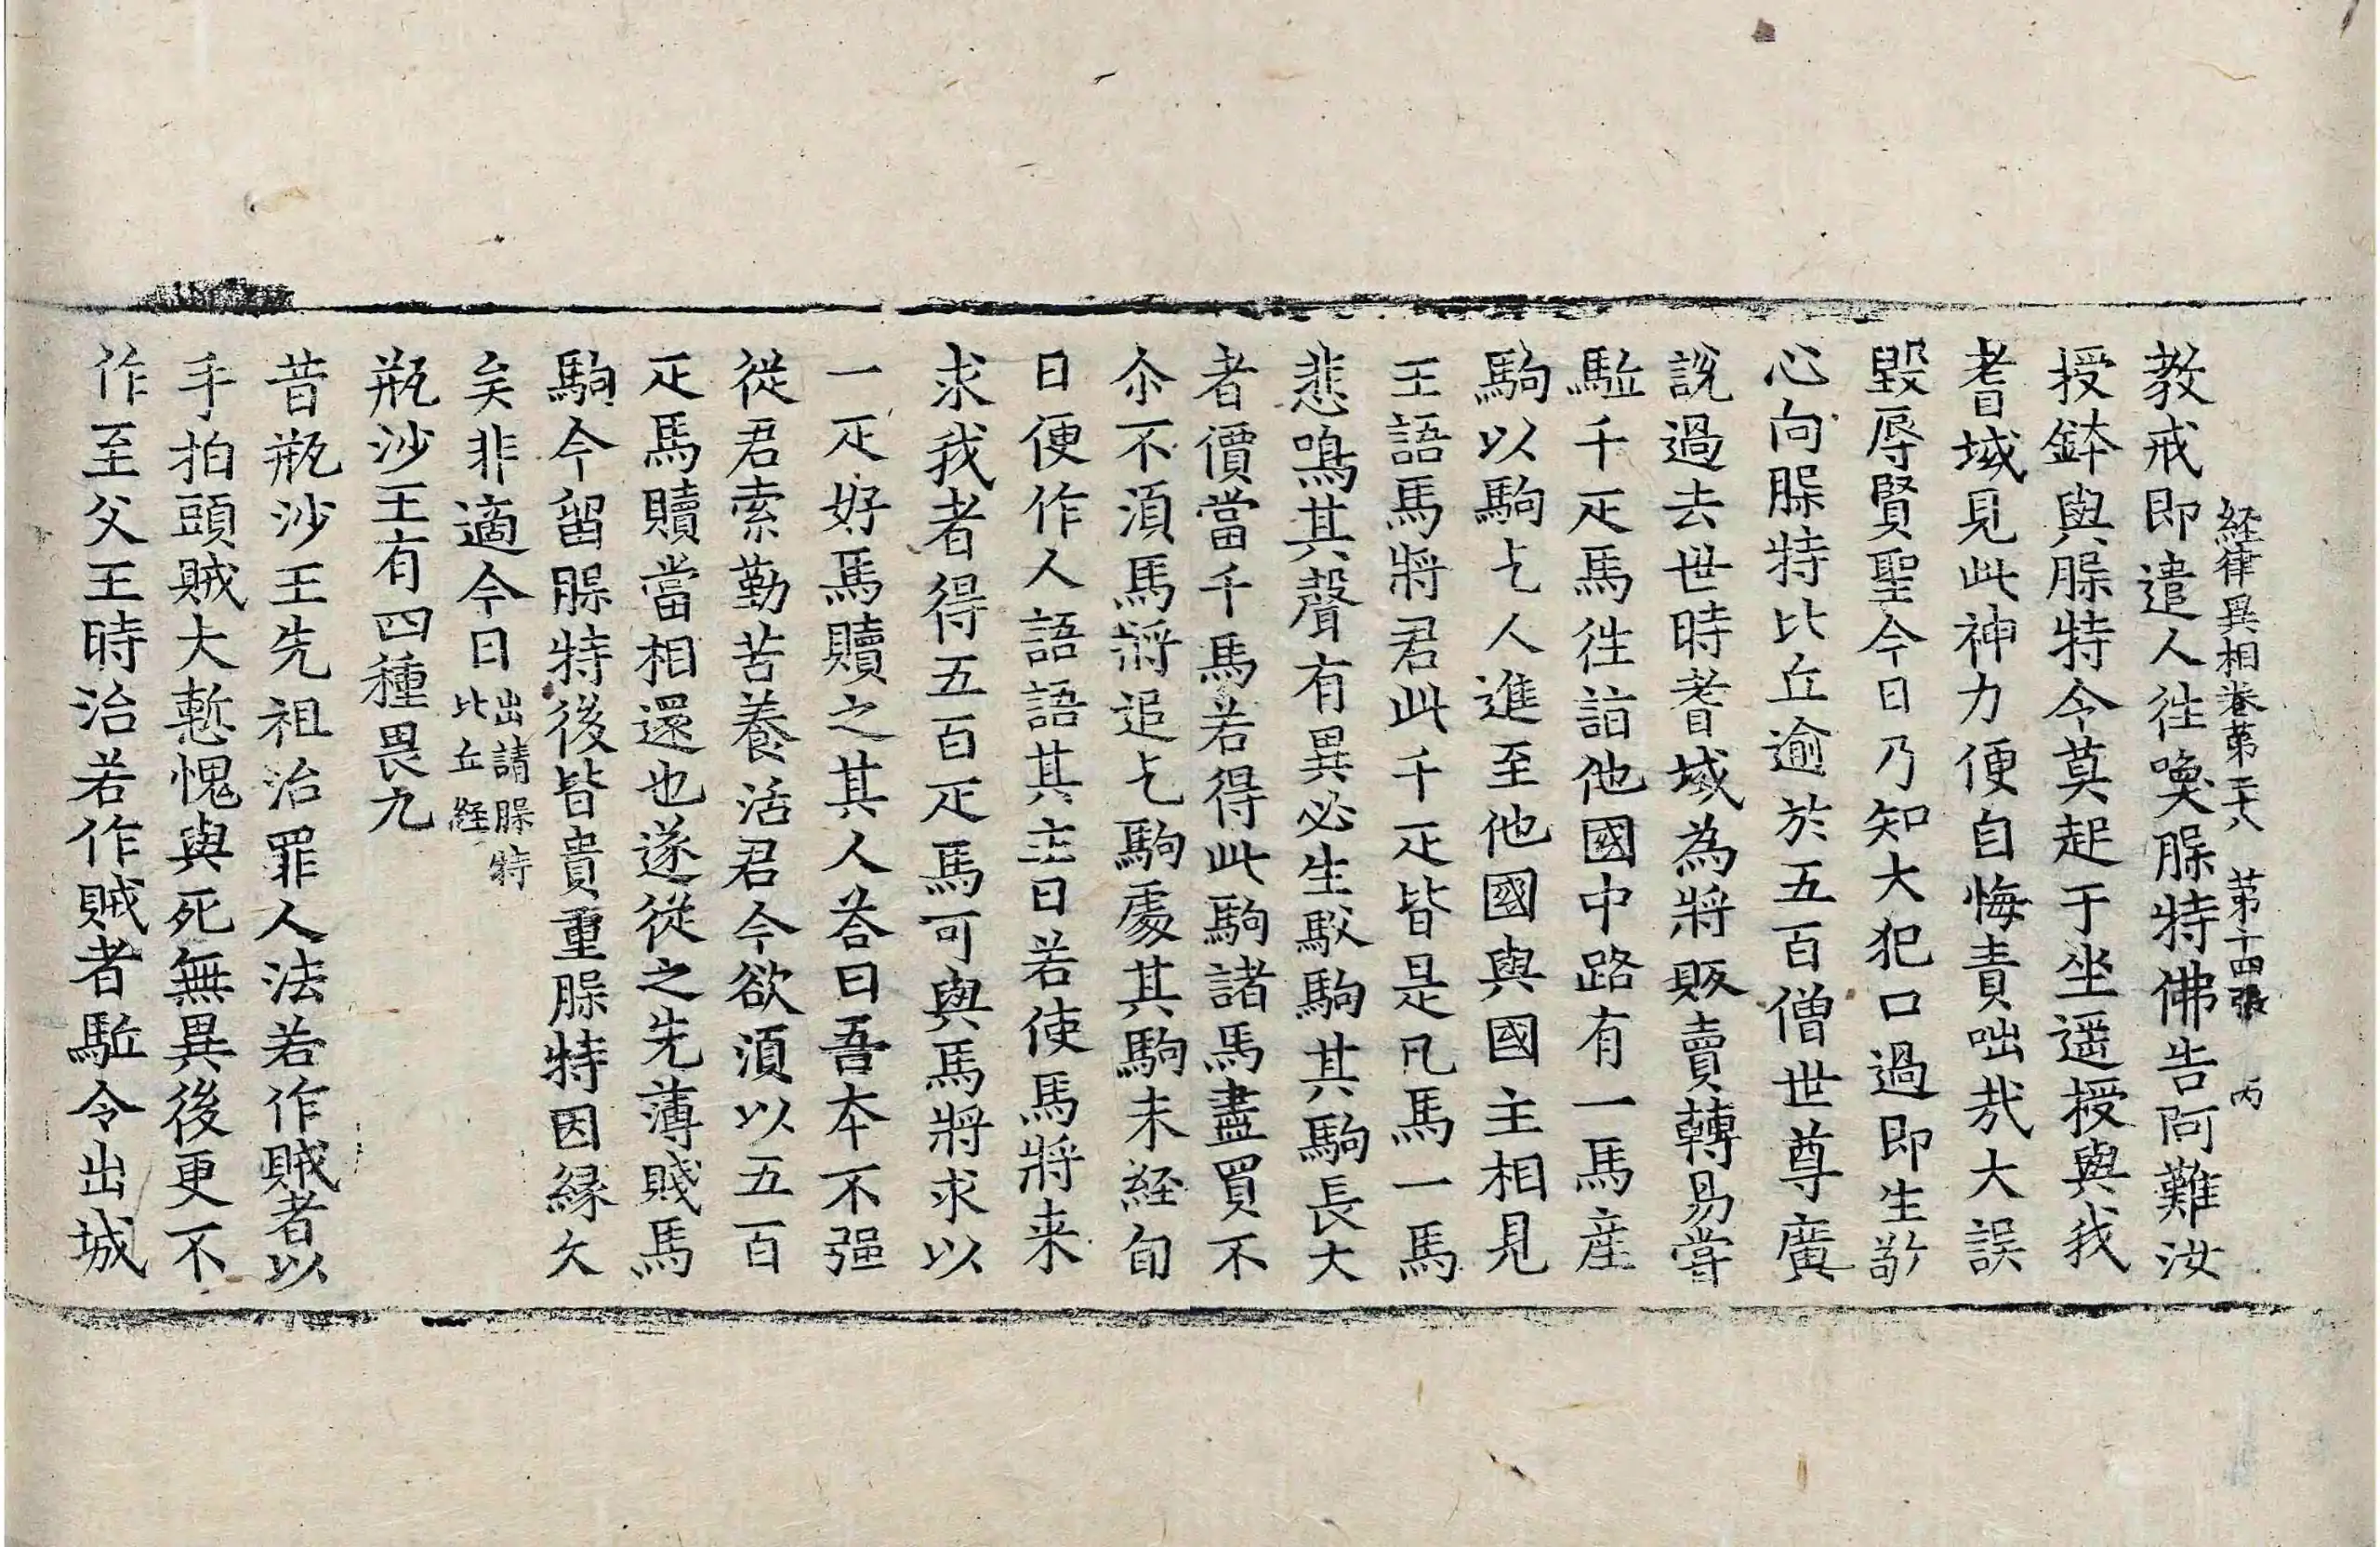 経律異相卷苐二十八 苐十四張 丙
教戒即遣人徃喚䏶特佛告阿難汝
授鉢與䏶特今莫起于坐遥授與我
耆域見此神力便自悔責咄㢤大誤
毀辱賢聖今日乃知大犯口過即生敬
心向䏶特比丘逾於五百僧世尊廣
說過去世時耆域為將販賣轉易嘗
駈千疋馬徃詣他國中路有一馬産
駒以駒乞人進至他國與國主相見
王語馬將君此千疋皆是凡馬一馬
悲鳴其聲有異必生駮駒其駒長大
者價當千馬若得此駒諸馬盡買不
尒不湏馬將追乞駒處其駒未経旬
日便作人語語其主曰若使馬將来
求我者得五百疋馬可與馬將求以
一疋好馬贖之其人荅曰吾本不强
從君索勤苦養活君今欲湏以五百
疋馬贖當相還也遂從之先薄賤馬
駒今留䏶特後皆貴重䏶特因縁久
矣非適今日出請䏶特比丘経
瓶沙王有四種畏九
昔瓶沙王先祖治罪人法若作賊者以
手拍頭賊大慙愧與死無異後更不
作至父王時治若作賊者駈令出城